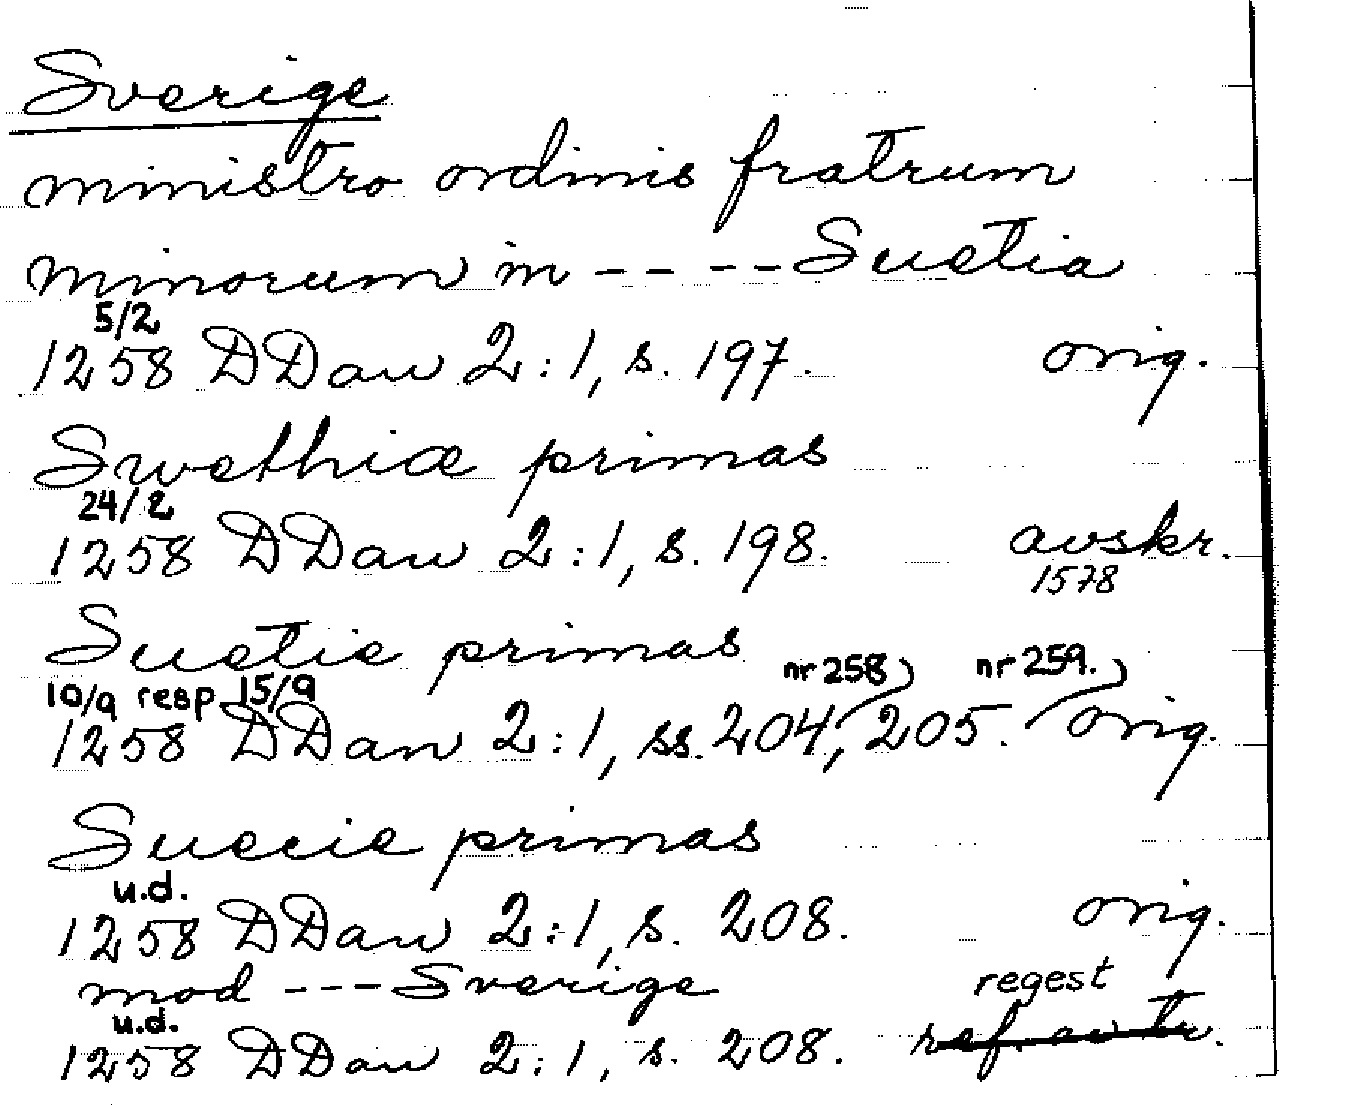 Sverige
ministro ordinis fratrum
minorum in - - - - Suetia
5/2
1258 DDan 2:1, s. 197. orig.
Swethiæ primas
24/2
1258 DDan 2:1, s. 198. avskr.
1578
Suetie primas
nr 258) nr 259.)
10/9 resp. 15/9
1258 DDan 2:1, ss. 204, 205. orig.
Suecie primas
u.d.
1258 DDan 2:1, s. 208. orig.
mod - - - Sverige regest
u.d.
1258 DDan 2:1, s. 208. ref. av tr.